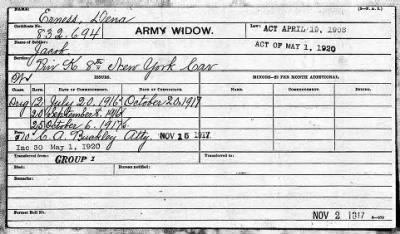 NAME: Erness, Dena (3-V.A.L.)
Certificate No. 832.694 ARMY WIDOW. Law: ACT APRIL 19, 1908
Name of Soldier: Jacob. ACT OF MAY 1, 1920
Service: Priv K 8th New York Cav
ISSUES. MINORS—$2 PER MONTH ADDITIONAL.
Class. Rate. Date of Commencement. Date of Certificate. Name. Date of Commencement. Date of Expiration.
Orig 12 July 20. 1916 October 20. 1917
20 September 8, 1916
25 October 6. 1917
Fee $10 C. A. Buckley Atty NOV 15 1917.
Inc 30 May 1, 1920
Transferred from: GROUP 1 Transferred to:
Died: Bureau notified:
Remarks:
Former Roll No. NOV 2 1917